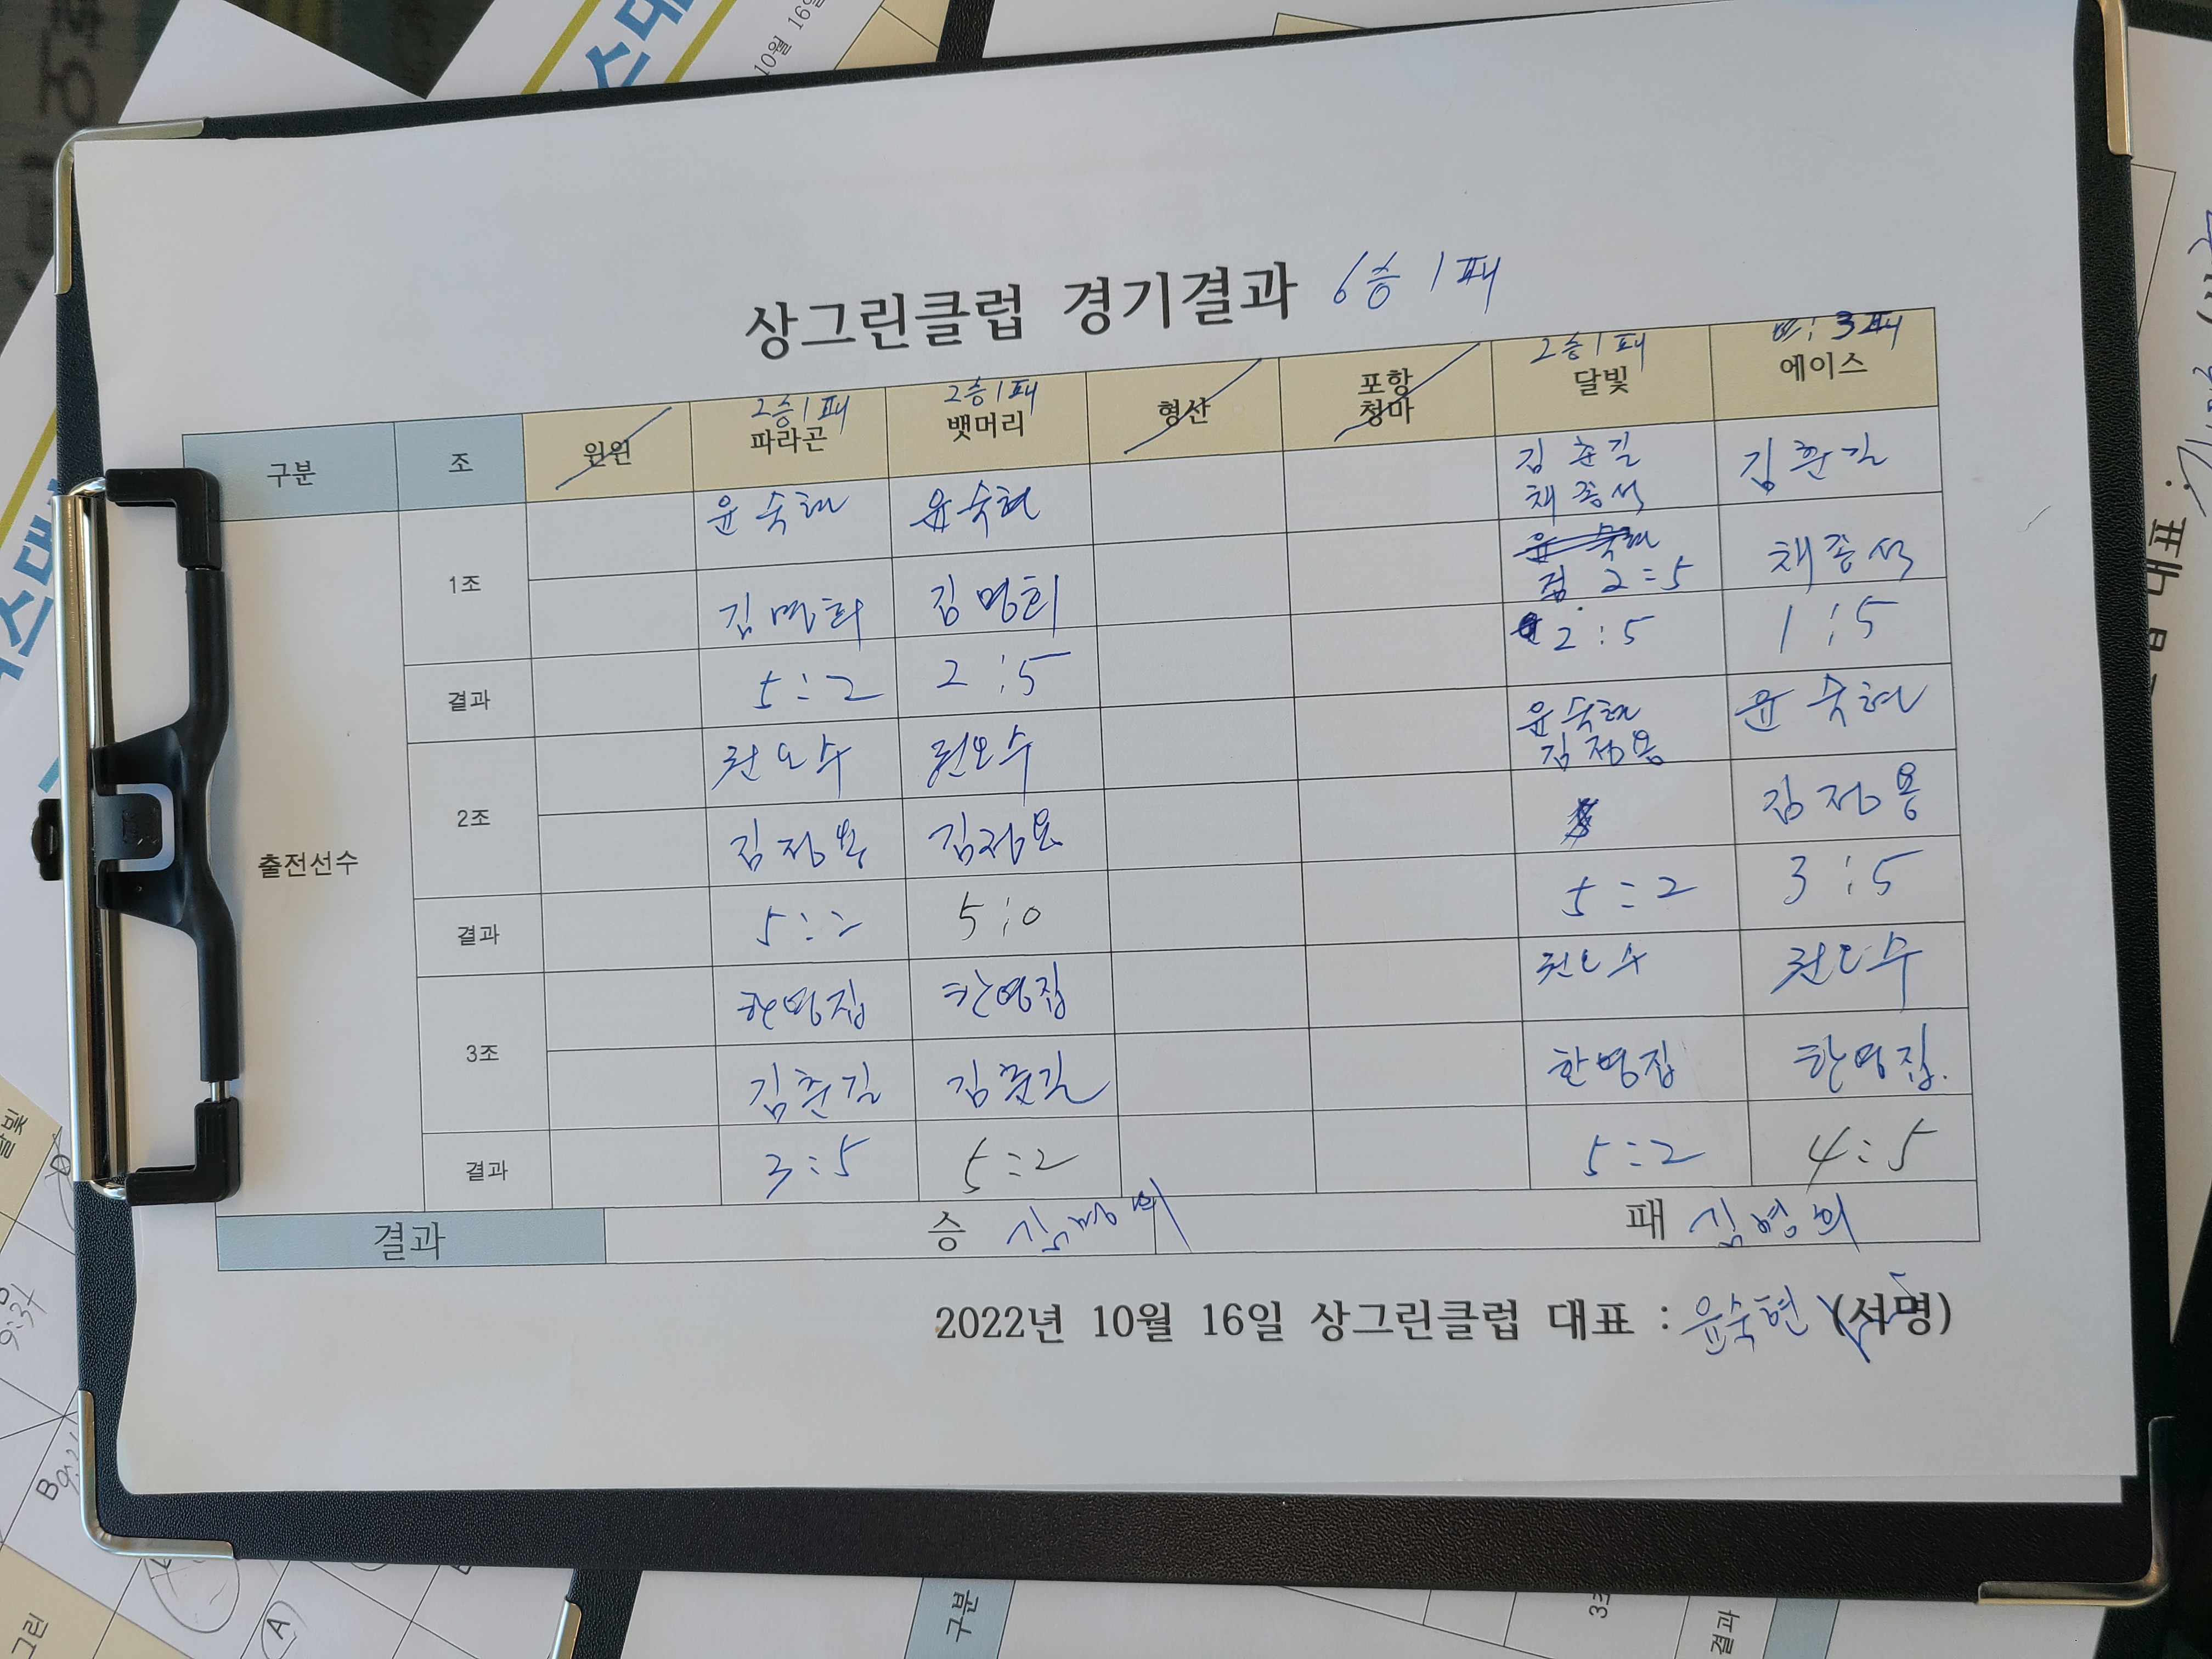 상그린클럽 경기결과 6승 1패
구분 조 윈윈 파라곤 뱃머리 형산 포항 청마 달빛 에이스
2승1패 2승1패 2승1패 3패
1조 윤숙현 윤숙현 김춘길 채종석 김춘길
김명희 김명희 2:5 채종석
결과 5:2 2:5 2:5 1:5
2조 권오수 권오수 윤숙현 김정용 윤숙현
김정용 김정용 김정용
결과 5:2 5:0 5:2 3:5
출전선수
3조 한영집 한영집 권오수 권오수
김춘길 김춘길 한영집 한영집.
결과 3:5 5:2 5:2 4:5
결과 승 패
2022년 10월 16일 상그린클럽 대표 : 윤숙현 (서명)
10월 16일
스대
대표 :
달빛
그린
A
구분
결과